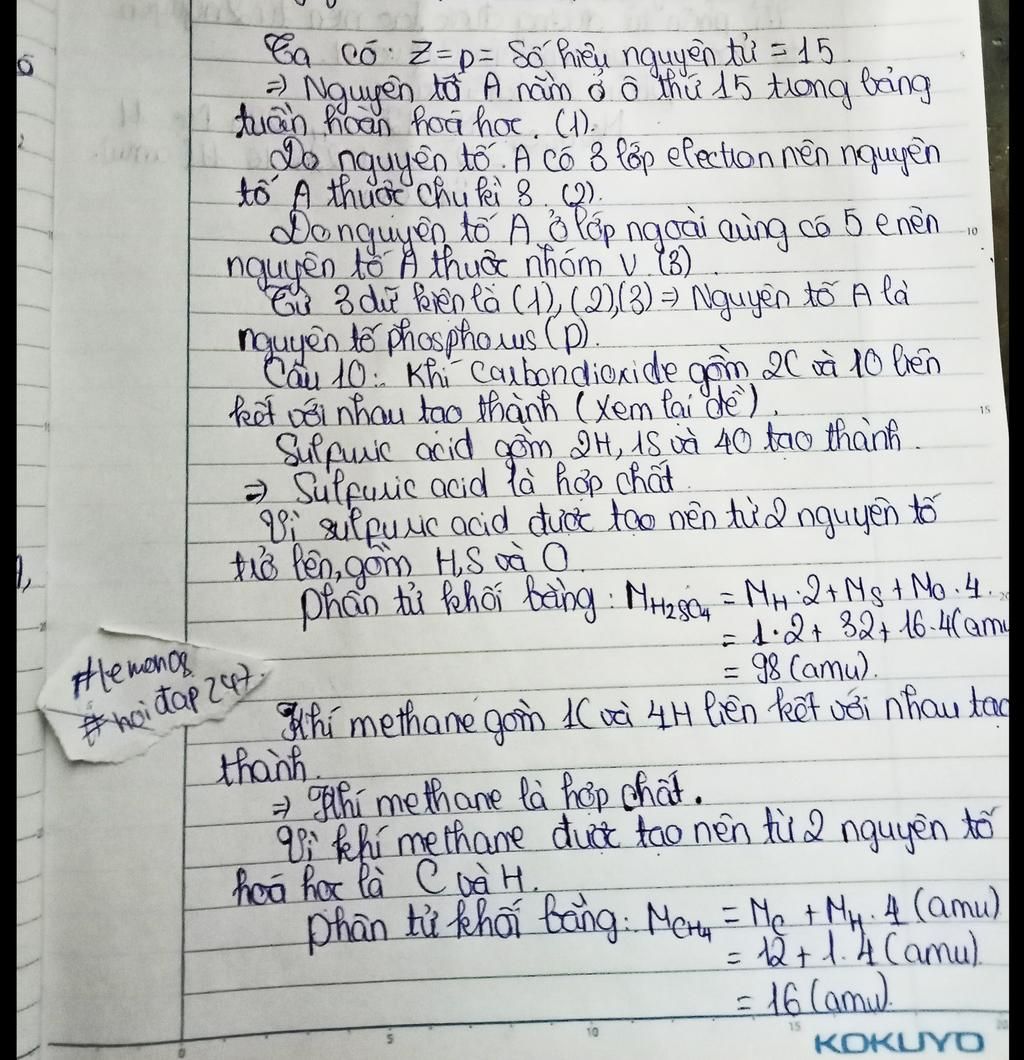 Ta có: Z=p= Số hiệu nguyên tử = 15.
⇒ Nguyên tố A nằm ở ô thứ 15 trong bảng
tuần hoàn hoá học. (1).
Do nguyên tố A có 3 lớp election nên nguyên
tố A thuộc chu kì 3. (2).
Do nguyên tố A ở lớp ngoài cùng có 5 e nên
nguyên tố A thuộc nhóm V. (3).
Từ 3 dữ kiện là (1), (2),(3) ⇒ Nguyên tố A là
nguyên tố phosphorus (P).
Câu 10: Khí carbondioxide gồm 2C và 1O liên
kết với nhau tạo thành (Xem lại đề).
Sulfuric acid gồm 2H, 1S và 4O tạo thành.
⇒ Sulfuric acid là hợp chất.
Vì sulfuric acid được tạo nên từ 2 nguyên tố
trở lên, gồm H,S và O.
Phân tử khối bằng: MH2SO4 = MH.2 + MS + MO.4.
= 1.2 + 32 + 16.4(amu
= 98 (amu).
#lemon08
#hoidap247.
Khí methane gồm 1C và 4H liên kết với nhau tạo
thành.
⇒ Khí methane là hợp chất.
Vì khí methane được tạo nên từ 2 nguyên tố
hoá học là C và H.
Phân tử khối bằng: MCH4 = MC + MH.4 (amu)
= 12 + 1.4 (amu)
= 16 (amu).
10
15
20
0
5
10
15
20
KOKUYO